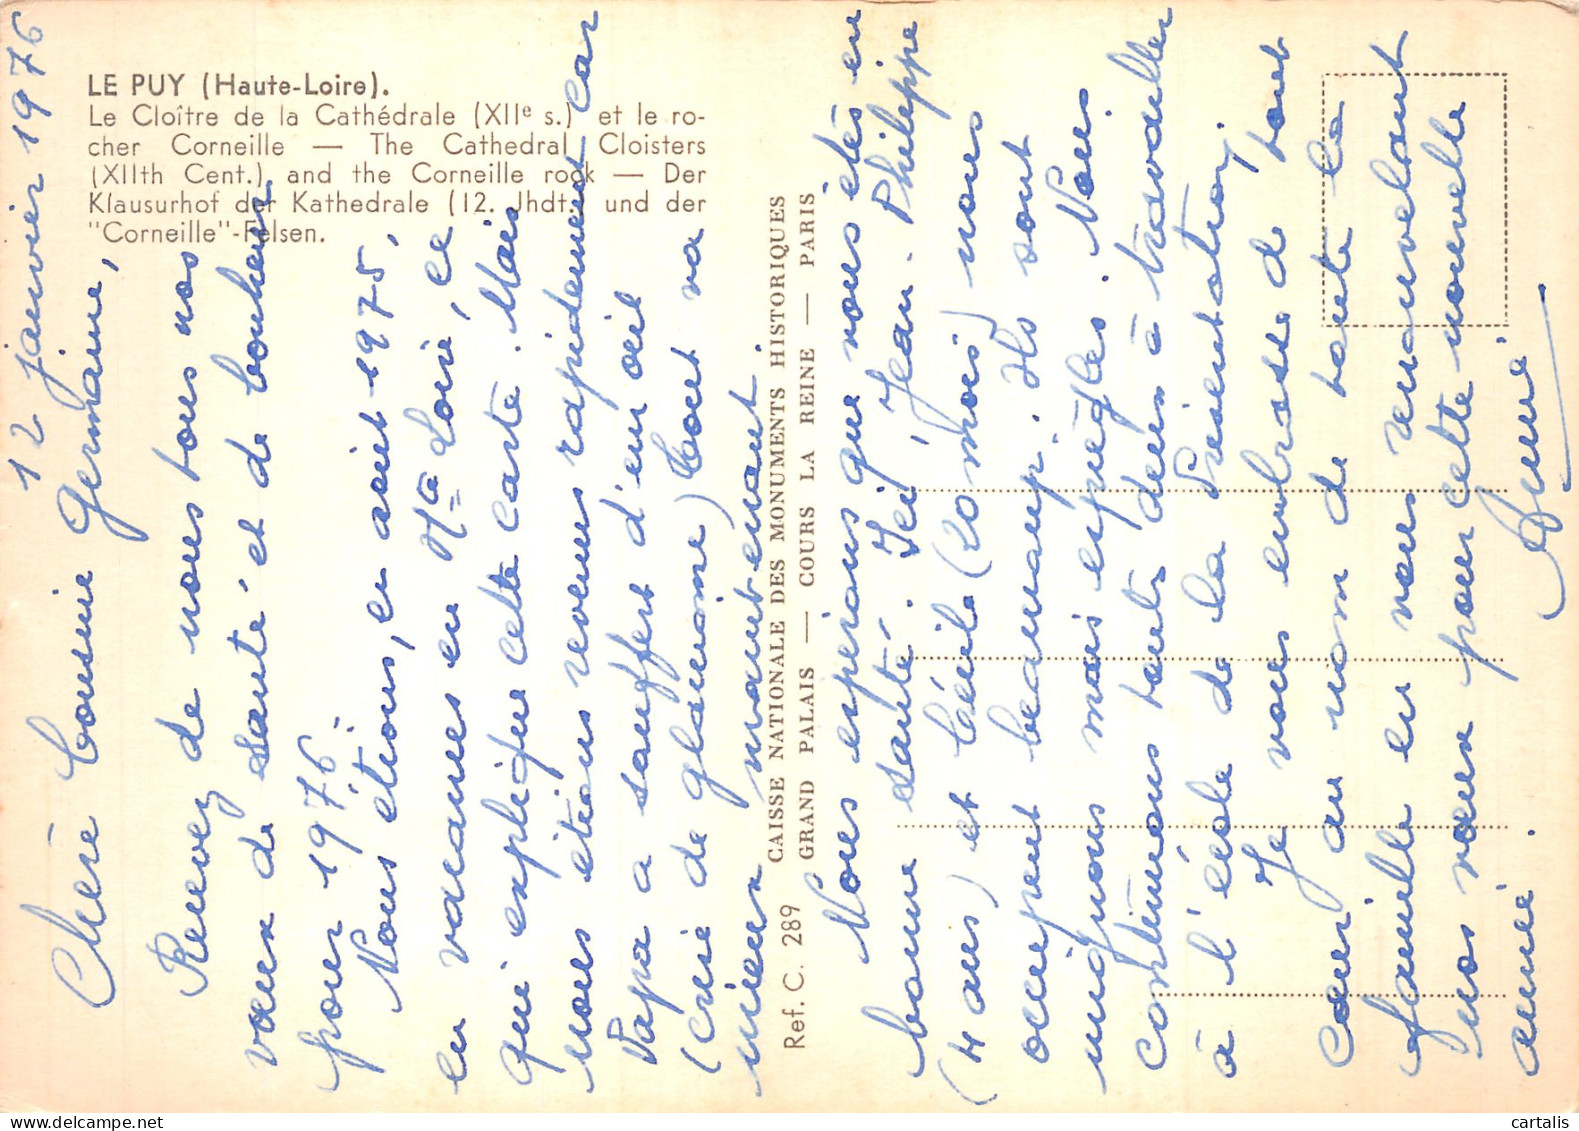 LE PUY (Haute-Loire).
Le Cloître de la Cathédrale (XIIe s.) et le ro-
cher Corneille — The Cathedral Cloisters
(XIIth Cent.) and the Corneille rock — Der
Klausurhof der Kathedrale (12. Jhdt.) und der
"Corneille"-Felsen.
12 janvier 1976
Chère Cousine Germaine,
Recevez de nous tous nos
vœux de santé et de bonheur
pour 1976.
Nous étions, en août 1975,
en vacances en Hte Loire, ce
qui explique cette carte. Mais
nous étions revenus rapidement car
Papa a souffert d'un œil
(crise de glaucome) tout va
mieux maintenant.
Ref. C. 289
CAISSE NATIONALE DES MONUMENTS HISTORIQUES
GRAND PALAIS — COURS LA REINE — PARIS
Nous espérons que vous êtes en
bonne santé. Ici, Jean-Philippe
(4 ans) et Cécile (20 mois) nous
occupent beaucoup. Ils sont
mignons mais espiègles. Nous
continuons toutes deux à travailler
à l'école de la Présentation.
Je vous embrasse de tout
cœur au nom de toute la
famille en vous renouvelant
nos vœux pour cette nouvelle
année.
Aimée
cartalis